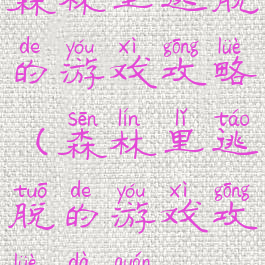 森林里逃脱
de yóu xì gōng lüè
的游戏攻略
Sēn lín lǐ táo
（森林里逃
tuō de yóu xì gōng
脱的游戏攻
lüè dà quán